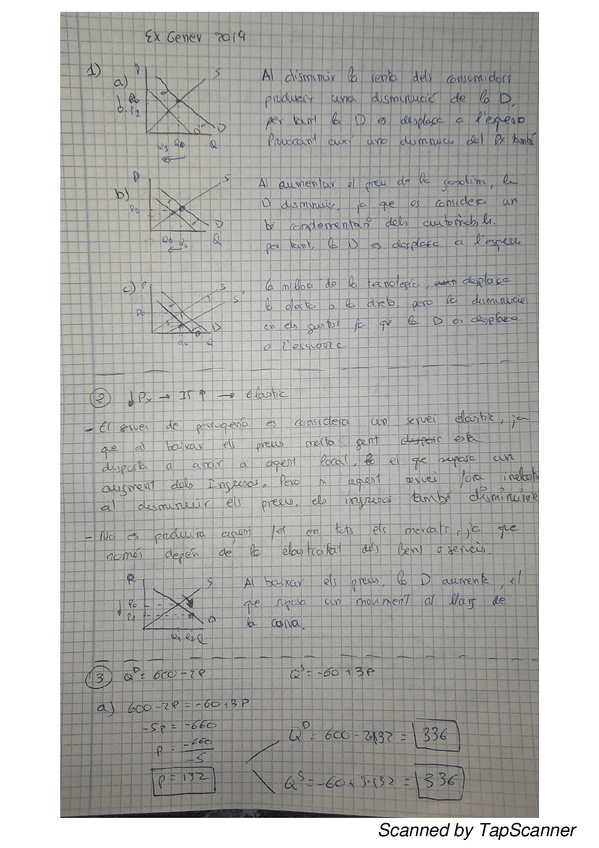 Ex Gener 2019
1) a) P S Al disminuir la renta dels consumidors
produeix una disminució de la D,
per tant la D es desplaça a l'esquerra
Provocant així una disminució del Px també
P0 P1 Q1 Q0 Q D
b) P S Al aumentar el preu de la gasolina, la
D disminuix, ja que es considera un
bé complementari dels automòbils.
per tant, la D es desplaça a l'esquerra
P0 Q1 Q0 Q D
c) P S S' la millora de la tecnologia, desplaça
la oferta a la dreta, però la disminució
en els gustos fa que la D es desplaça
a l'esquerra
P0 Q0 Q D
2 ↓Px → IT↑ → elastic
- El servei de perruqueria es considera un servei elastic, ja
que al baixar els preus molta gent està
disposta a anar a aquest local, el que suposa un
augment dels Ingresos. Pero si aquest servei fora inelastic
al disminuir els preus, els ingresos també disminuirien
- No es produira aquest fet en tots els mercats, ja que
només depèn de la elasticitat dels bens o serveis.
P S Al baixar els preus, la D aumenta, el
que suposa un moviment al llarg de
la corva.
P0 P1 Q1 Q2 Q D
3 Q^D = 600-2P Q^S = -60+3P
a) 600-2P = -60+3P
-5P = -660
P = -660/-5
P = 132
Q^D = 600-2·132 = 336
Q^S = -60+3·132 = 336
Scanned by TapScanner